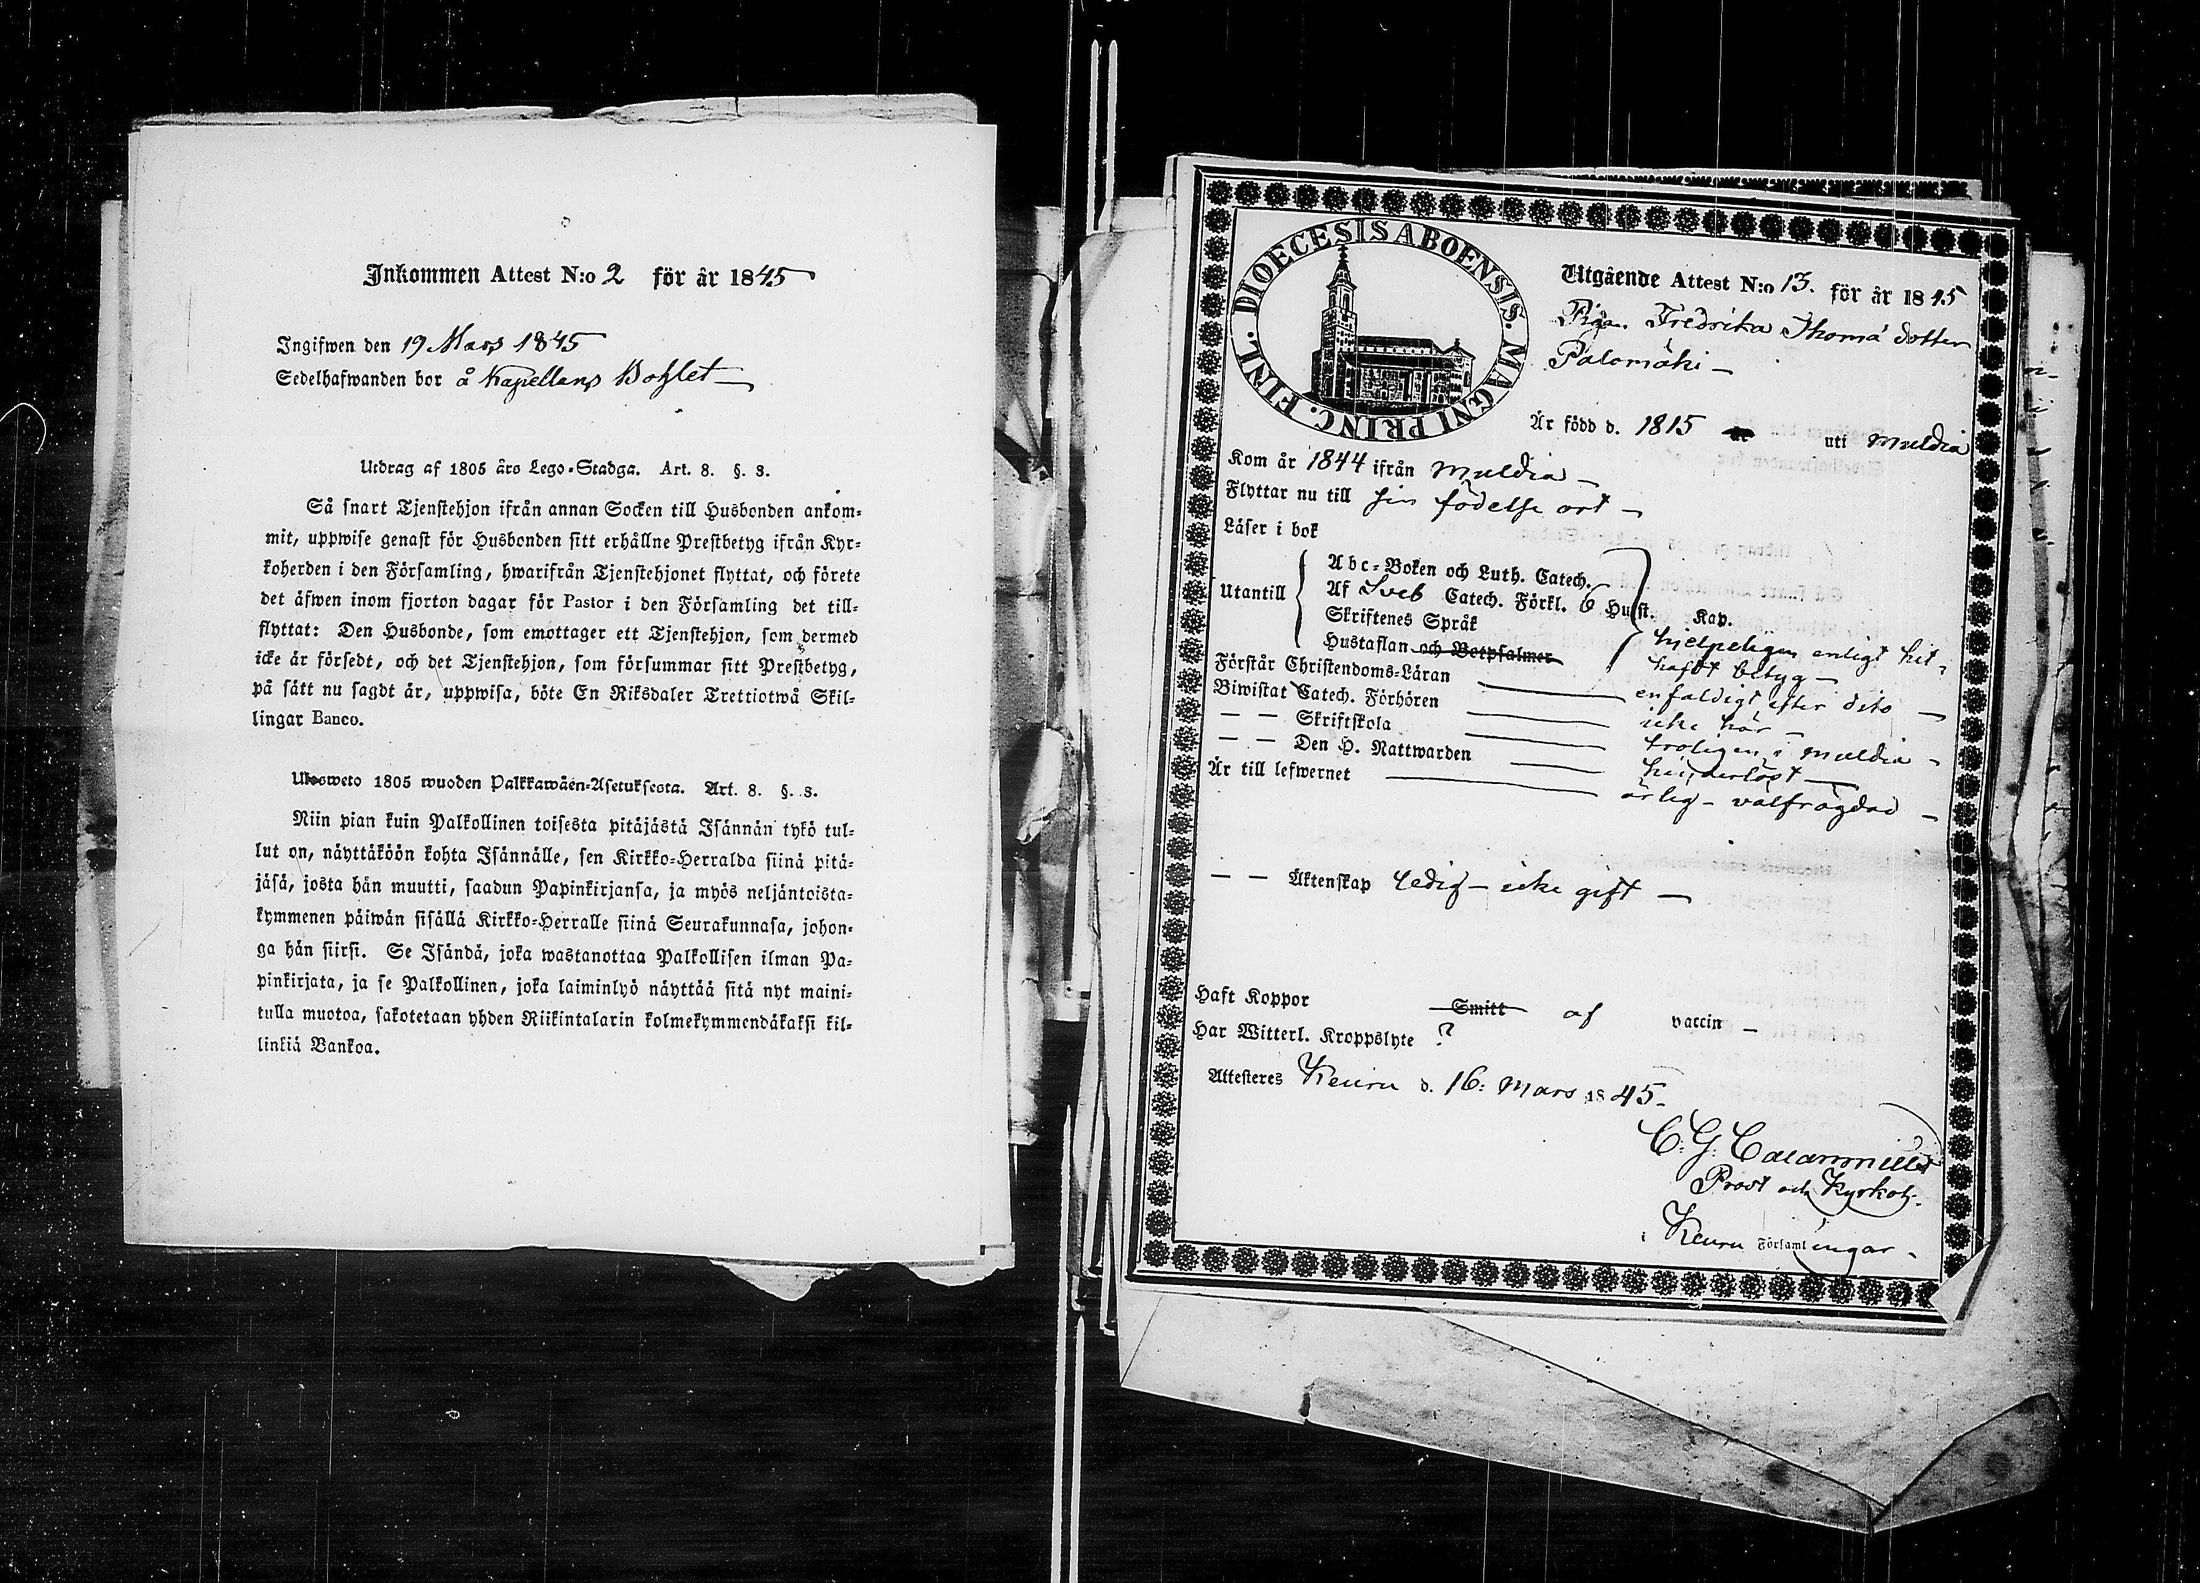 Inkommen Attest N:o 2 för år 1845
Ingifwen den 19 Mars 1845
Sedelhafwanden bor å Kapellans Bohlet
Utdrag af 1805 års Lego-Stadga. Art. 8. §. 3.
Så snart Tjenstehjon ifrån annan Socken till Husbonden ankom-
mit, uppwise genast för Husbonden sitt erhållne Prestbetyg ifrån Kyr-
koherden i den Församling, hwarifrån Tjenstehjonet flyttat, och förete
det äfwen inom fjorton dagar för Pastor i den Församling det till-
flyttat: Den Husbonde, som emottager ett Tjenstehjon, som dermed
icke är försedt, och det Tjenstehjon, som försummar sitt Prestbetyg,
på sätt nu sagdt är, uppwisa, böte En Riksdaler Trettiotwå Skil-
lingar Banco.
Ulosweto 1805 wuoden Palkkawäen-Asetuksesta. Art. 8. §. 3.
Niin pian kuin Palkollinen toisesta pitäjästä Isännän tykö tul-
lut on, näyttäköön kohta Isännälle, sen Kirkko-Herralda siinä pitä-
jäsä, josta hän muutti, saadun Papinkirjansa, ja myös neljäntoista-
kymmenen päiwän sisällä Kirkko-Herralle siinä Seurakunnasa, johon-
ga hän siirsi. Se Isändä, joka wastanottaa Palkollisen ilman Pa-
pinkirjata, ja se Palkollinen, joka laiminlyö näyttää sitä nyt maini-
tulla muotoa, sakotetaan yhden Riikintalarin kolmekymmendäkaksi kil-
linkiä Bankoa.
DIOECESIS ABOENSIS. MAGNI PRINC. FINL.
Utgående Attest N:o 13. för år 1845
Pigan Fredrika Thomä dotter
Palomäki
Är född d. 1815 uti Muldia
Kom år 1844 ifrån Muldia
Flyttar nu till sin födelse ort
Läser i bok
Utantill
Abc-Boken och Luth. Catech.
Af Sveb Catech. Förkl. 6 Hufst. Kap.
Skriftenes Språk
Hustaflan och Botpsalmer
hjelpeligen enligt hit-
haft betyg
Förstår Christendoms-Läran enfaldigt efter dito
Biwistat Catech. Förhören icke här
— — Skriftskola troligen i Muldia
— — Den H. Nattwarden hinderlöst
Är till lefwernet ärlig - välfrägdad
— — Äktenskap Ledig - icke gift
Haft Koppor Smitt af vaccin
Har Witterl. Kroppslyte ?
Attesteres Keuru d. 16: Mars 1845
C: G: Calamnius
Prost och Kyrkoh:
i Keuru Församlingar